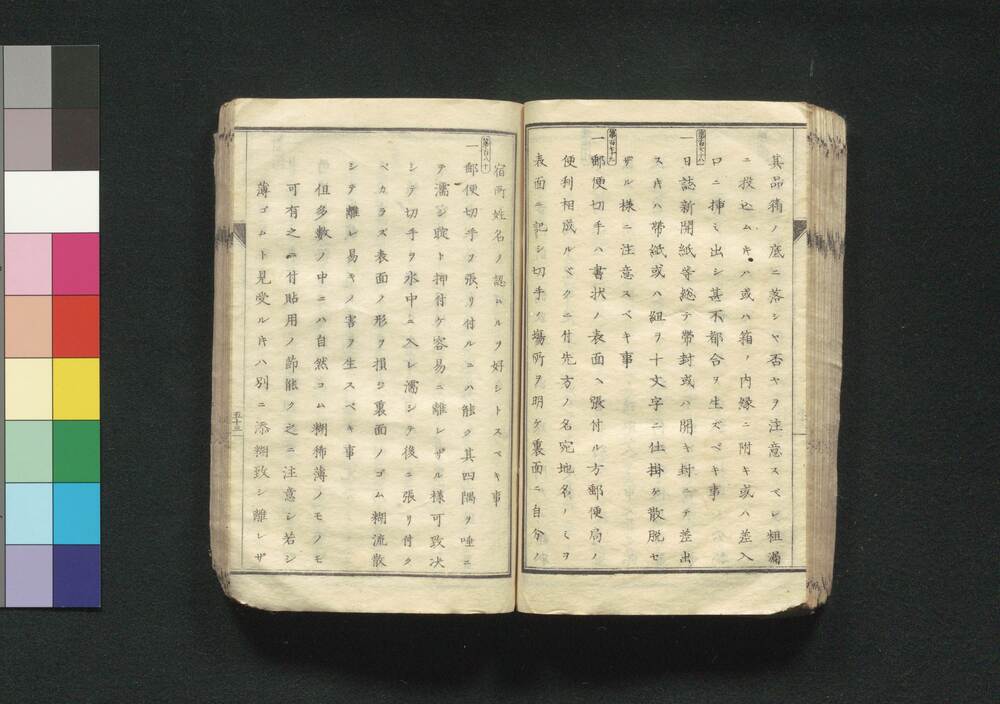 其品箱ノ底ニ落シヤ否ヤヲ注意スベシ粗漏
ニ投込ムキハ或ハ箱ノ内縁ニ附キ或ハ差入
口ニ挿ミ出シ甚不都合ヲ生ズベキ事
第百七十八
一日誌新聞紙等総テ帯封或ハ開キ封ニテ差出
スキハ帯紙或ハ紐ヲ十文字ニ仕掛ケ散脱セ
ザル様ニ注意スベキ事
第百七十九
一郵便切手ハ書状ノ表面ヘ張付ル方郵便局ノ
便利相成ルベクニ付先方ノ名宛地名ノミヲ
表面ニ記シ切手ノ場所ヲ明ケ裏面ニ自分ノ
宿所姓名ノ認ムルヲ好シトスベキ事
第百八十
一郵便切手ヲ張リ付ルニハ能ク其四隅ヲ唾ニ
テ濡シ聢ト押付ケ容易ニ離レザル様可致决
シテ切手ヲ氷中ニ入レ濡シテ後ニ張リ付ク
ベカラズ表面ノ形ヲ損シ裏面ノゴム糊流散
シテ離レ易キノ害ヲ生スベキ事
但多数ノ中ニハ自然コム糊稀薄ノモノモ
可有之ニ付貼用ノ節能ク之ニ注意シ若シ
薄ゴムト見受ルキハ別ニ添糊致シ離レザ
五十三